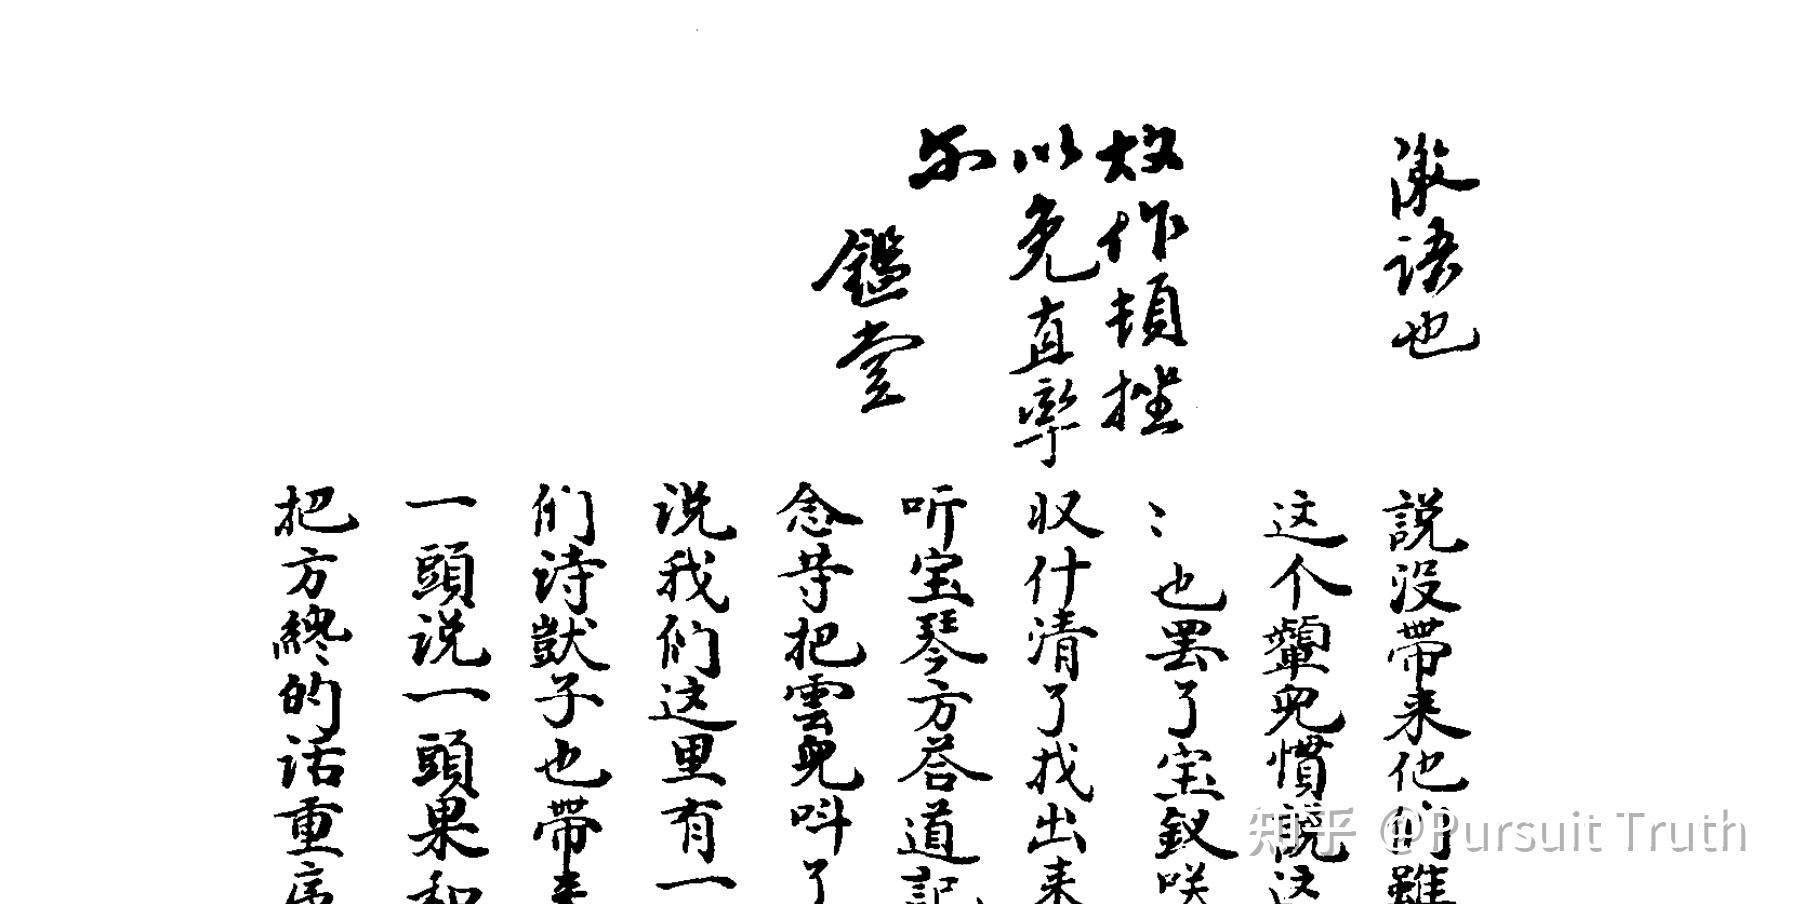 激语也
故作頓挫
以免直率
尔
鑑堂
説没帶来他们雖
这个顰兒慣説这
〻也罢了宝釵咲
収什清了找出来
听宝琴方荅道記
念等把雲兒呌了
说我们这里有一
们诗獃子也帶来
一頭说一頭果和
把方纔的话重序
知乎 @Pursuit Truth